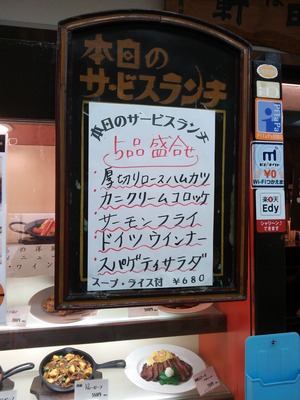 本日の
サービスランチ
本日のサービスランチ
5品盛合せ
・厚切りロースハムカツ
・カニクリームコロッケ
・サーモンフライ
・ドイツウインナー
・スパゲティサラダ
スープ・ライス付 ¥680
PiTaPa
¥0
Wi-Fiつかえます
楽天
Edy
シャリーン♪
できます